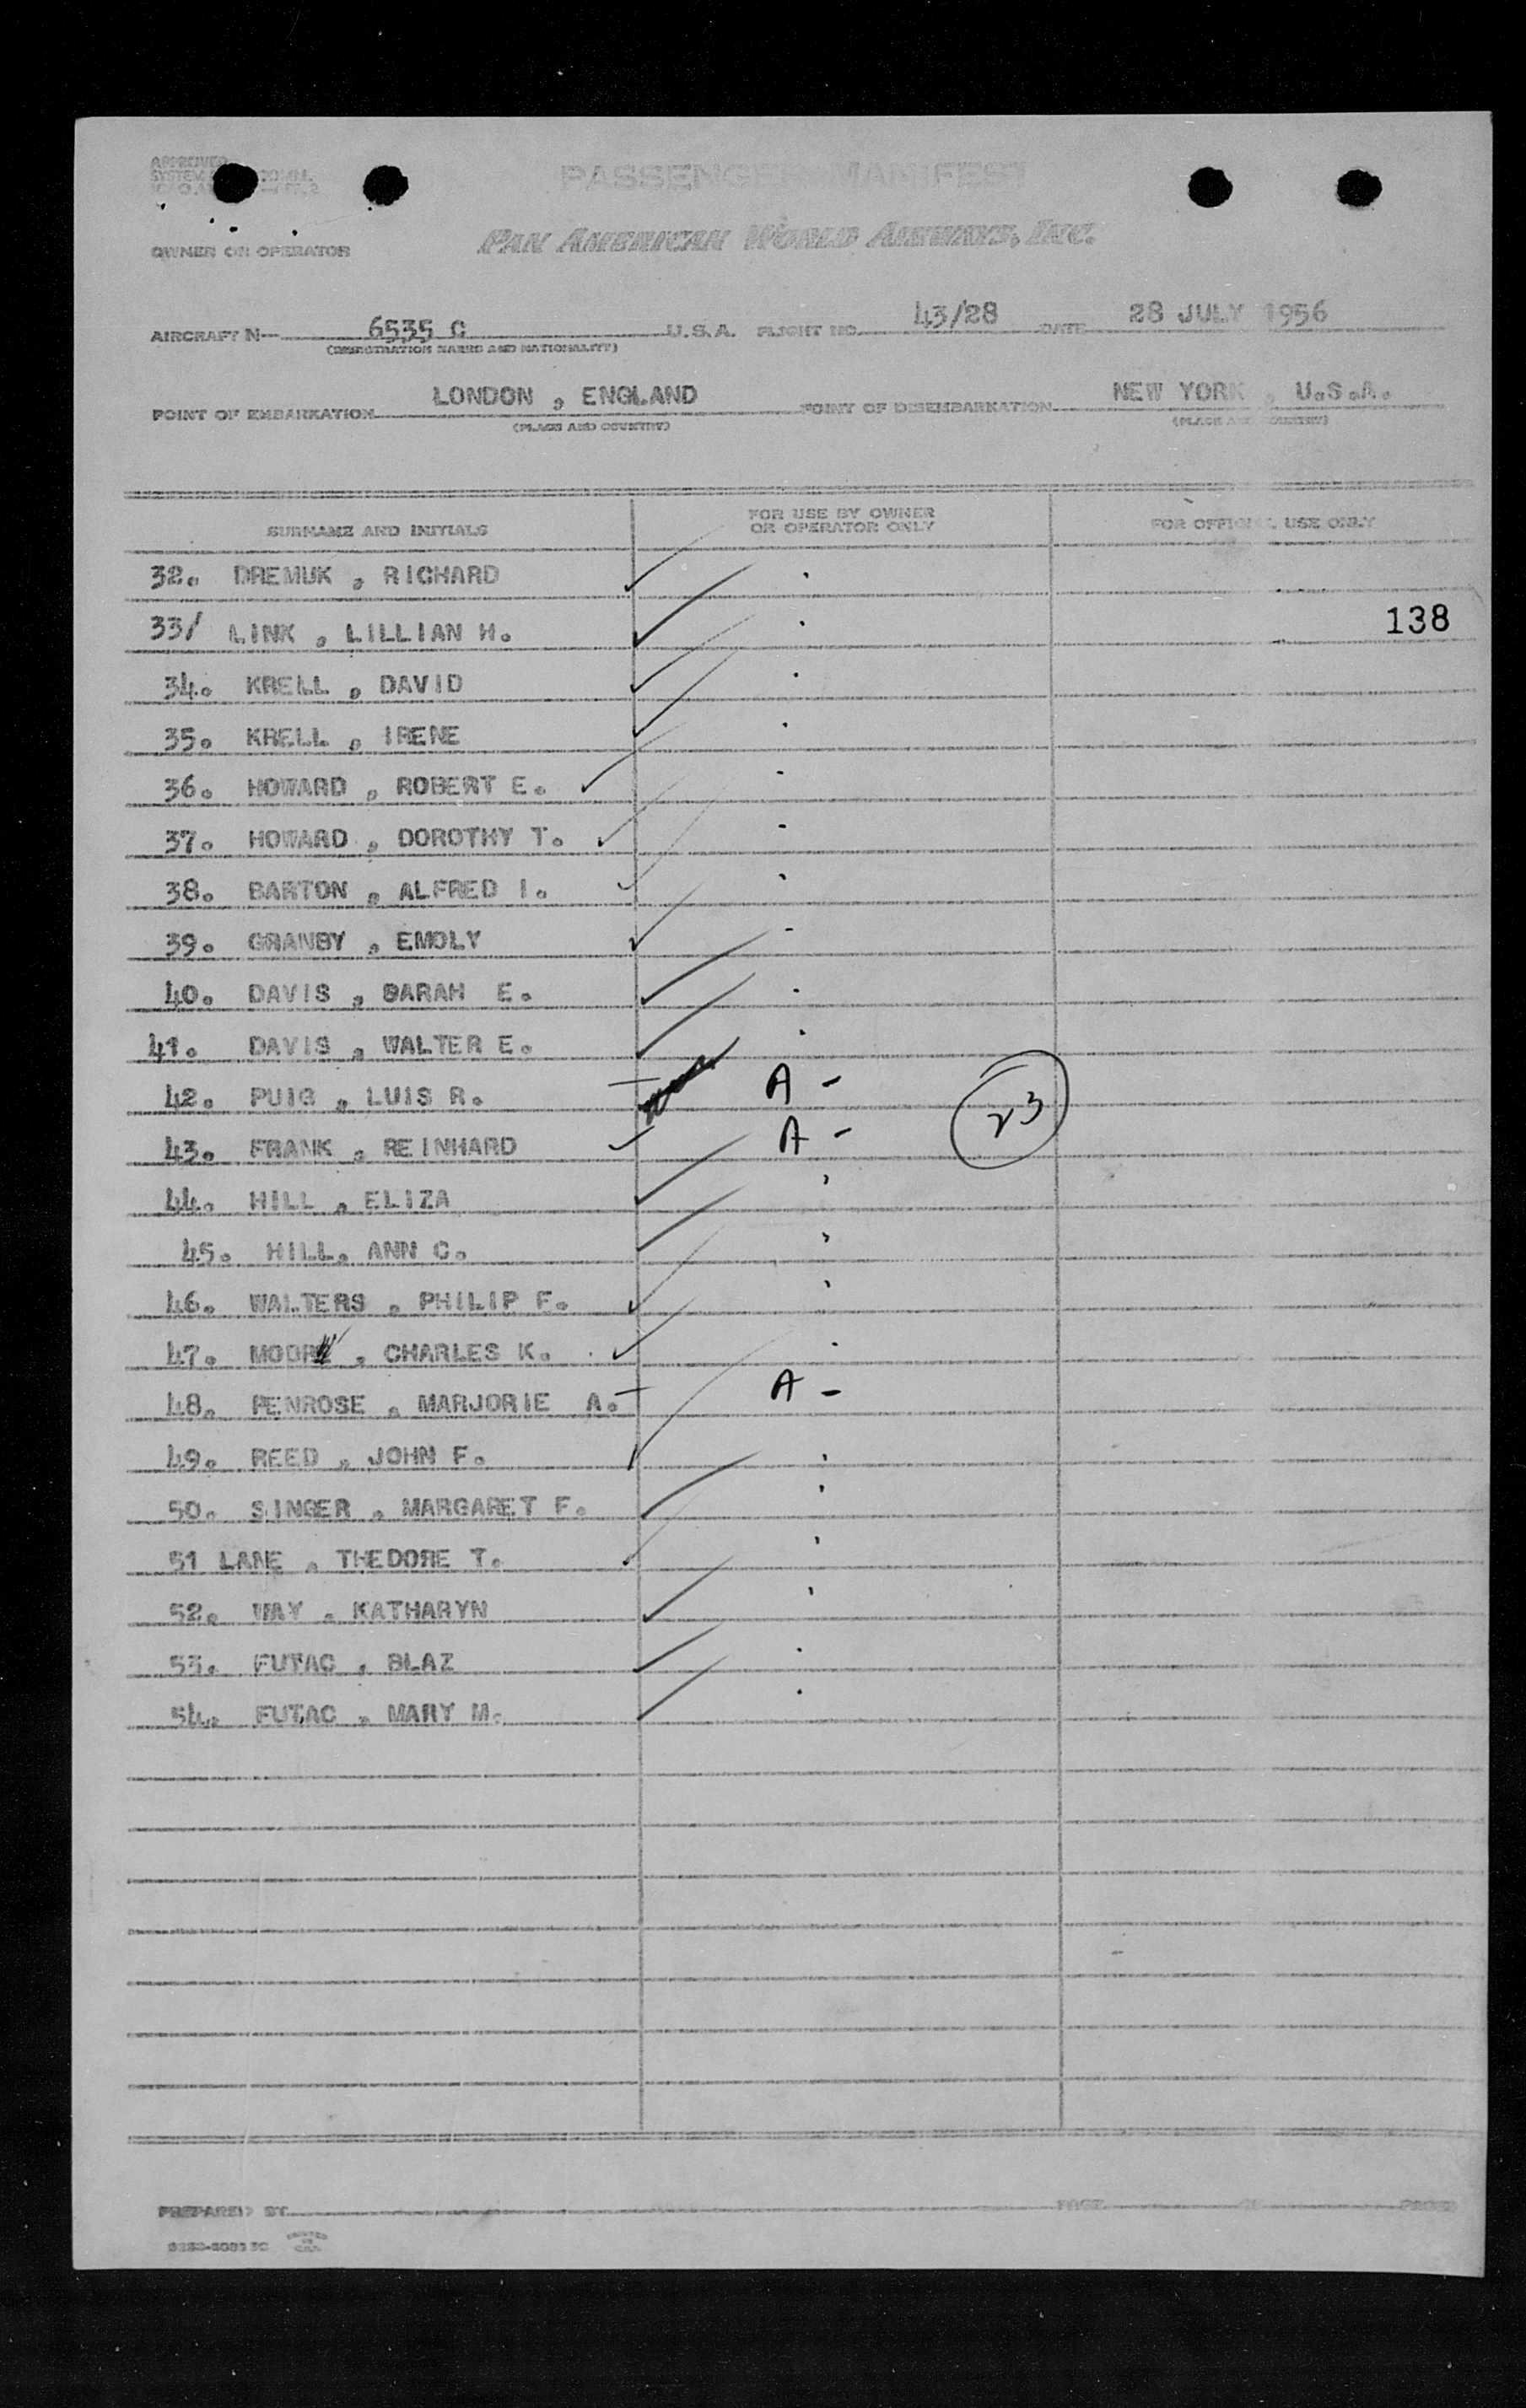 APPROVED
SYSTEM COMM.
PASSENGER MANIFEST
OWNER OR OPERATOR PAN AMERICAN WORLD AIRWAYS, INC.
AIRCRAFT N— 6535 C U.S.A. FLIGHT NO. 43/28 DATE 28 JULY 1956
(REGISTRATION MARKS AND NATIONALITY)
POINT OF EMBARKATION LONDON , ENGLAND POINT OF DISEMBARKATION NEW YORK , U.S.A.
(PLACE AND COUNTRY) (PLACE AND COUNTRY)
SURNAME AND INITIALS FOR USE BY OWNER OR OPERATOR ONLY FOR OFFICIAL USE ONLY
32. DREMUK , RICHARD
33/ LINK , LILLIAN H. 138
34. KRELL , DAVID
35. KRELL , IRENE
36. HOWARD , ROBERT E.
37. HOWARD , DOROTHY T.
38. BARTON , ALFRED I.
39. GRANBY , EMOLY
40. DAVIS , SARAH E.
41. DAVIS , WALTER E.
42. PUIG , LUIS R. A - 23
43. FRANK , REINHARD A -
44. HILL , ELIZA
45. HILL, ANN C.
46. WALTERS , PHILIP F.
47. MOORE , CHARLES K.
48. PENROSE , MARJORIE A. A -
49. REED , JOHN F.
50. SINGER , MARGARET F.
51 LANE , THEDORE T.
52. WAY , KATHARYN
53. FUTAC , BLAZ
54. FUTAC , MARY M.
PREPARED BY PAGE OF PAGES
PRINTED IN U.S.A.